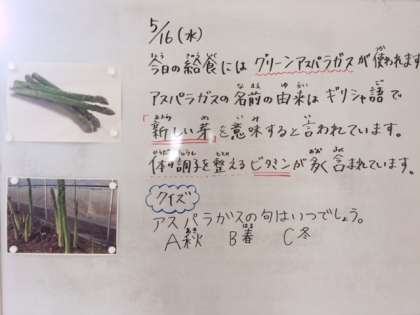 5/16(水)
今日の給食にはグリーンアスパラガスが使われます
アスパラガスの名前の由来はギリシャ語で
「新しい芽」を意味すると言われています。
体の調子を整えるビタミンが多く含まれています。
クイズ
アスパラガスの旬はいつでしょう。
A秋 B春 C冬